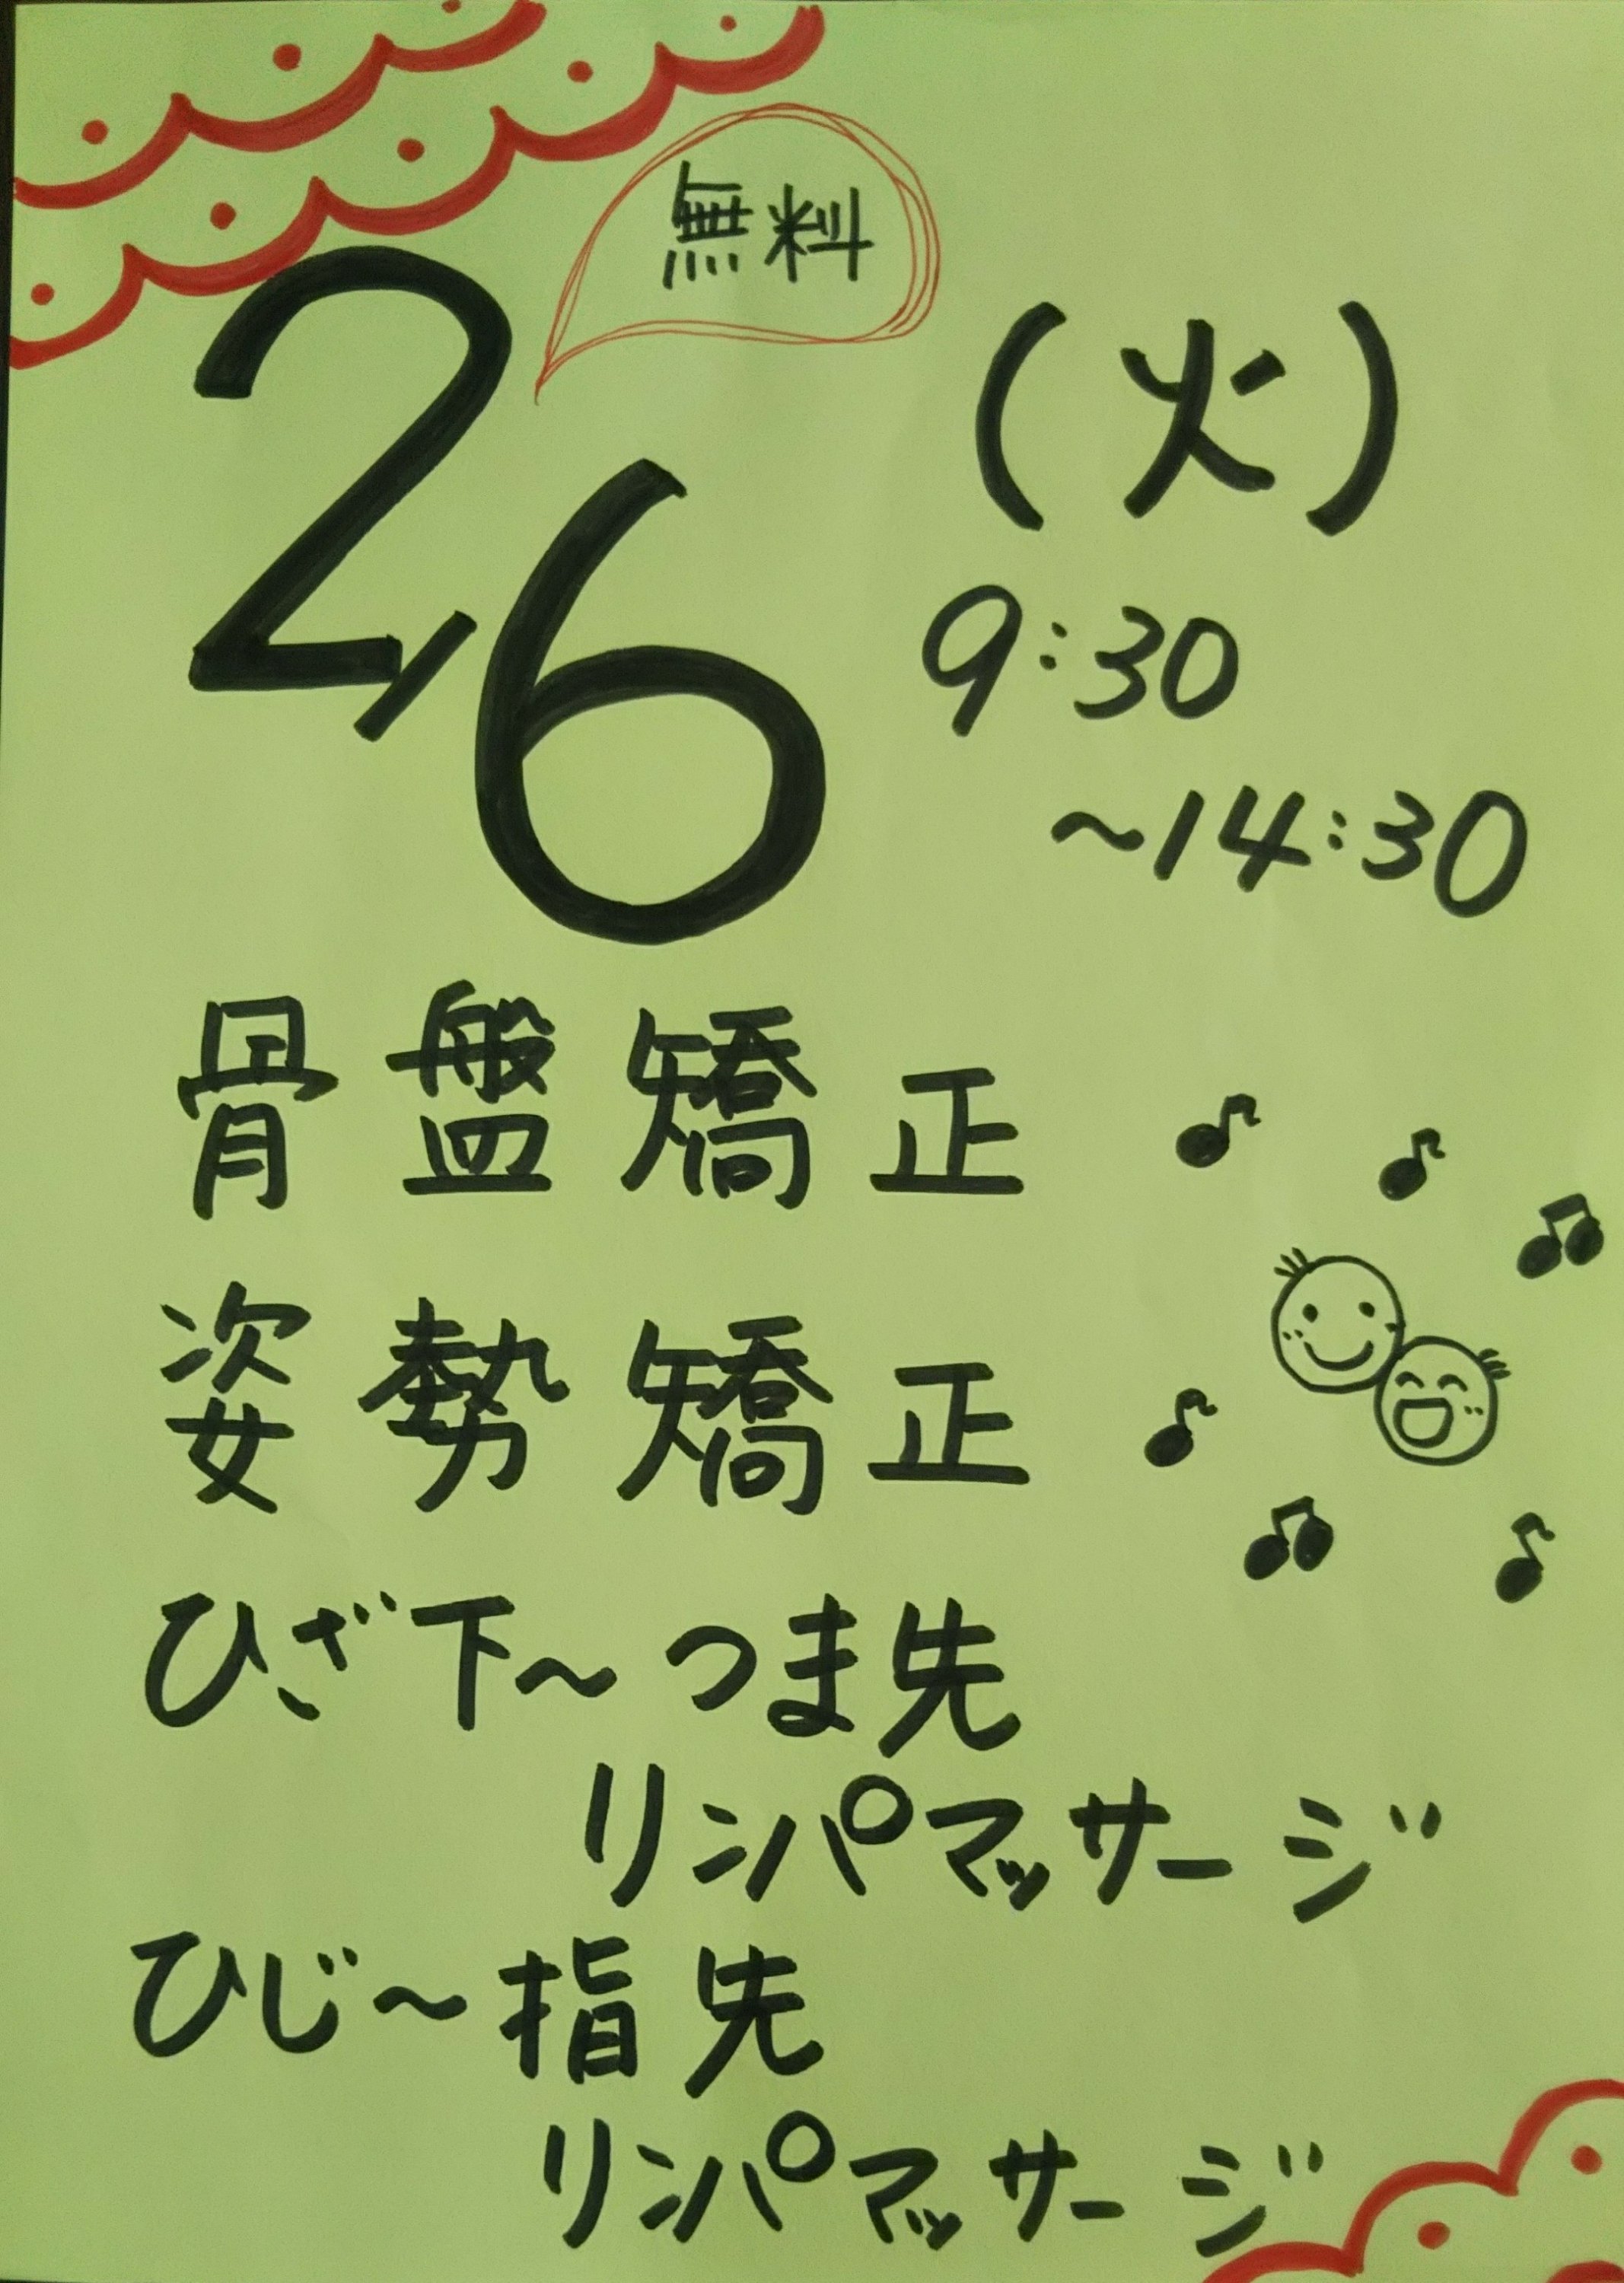 無料
2/6 (火)
9:30
~14:30
骨盤矯正
姿勢矯正
ひざ下~つま先
リンパマッサージ
ひじ~指先
リンパマッサージ